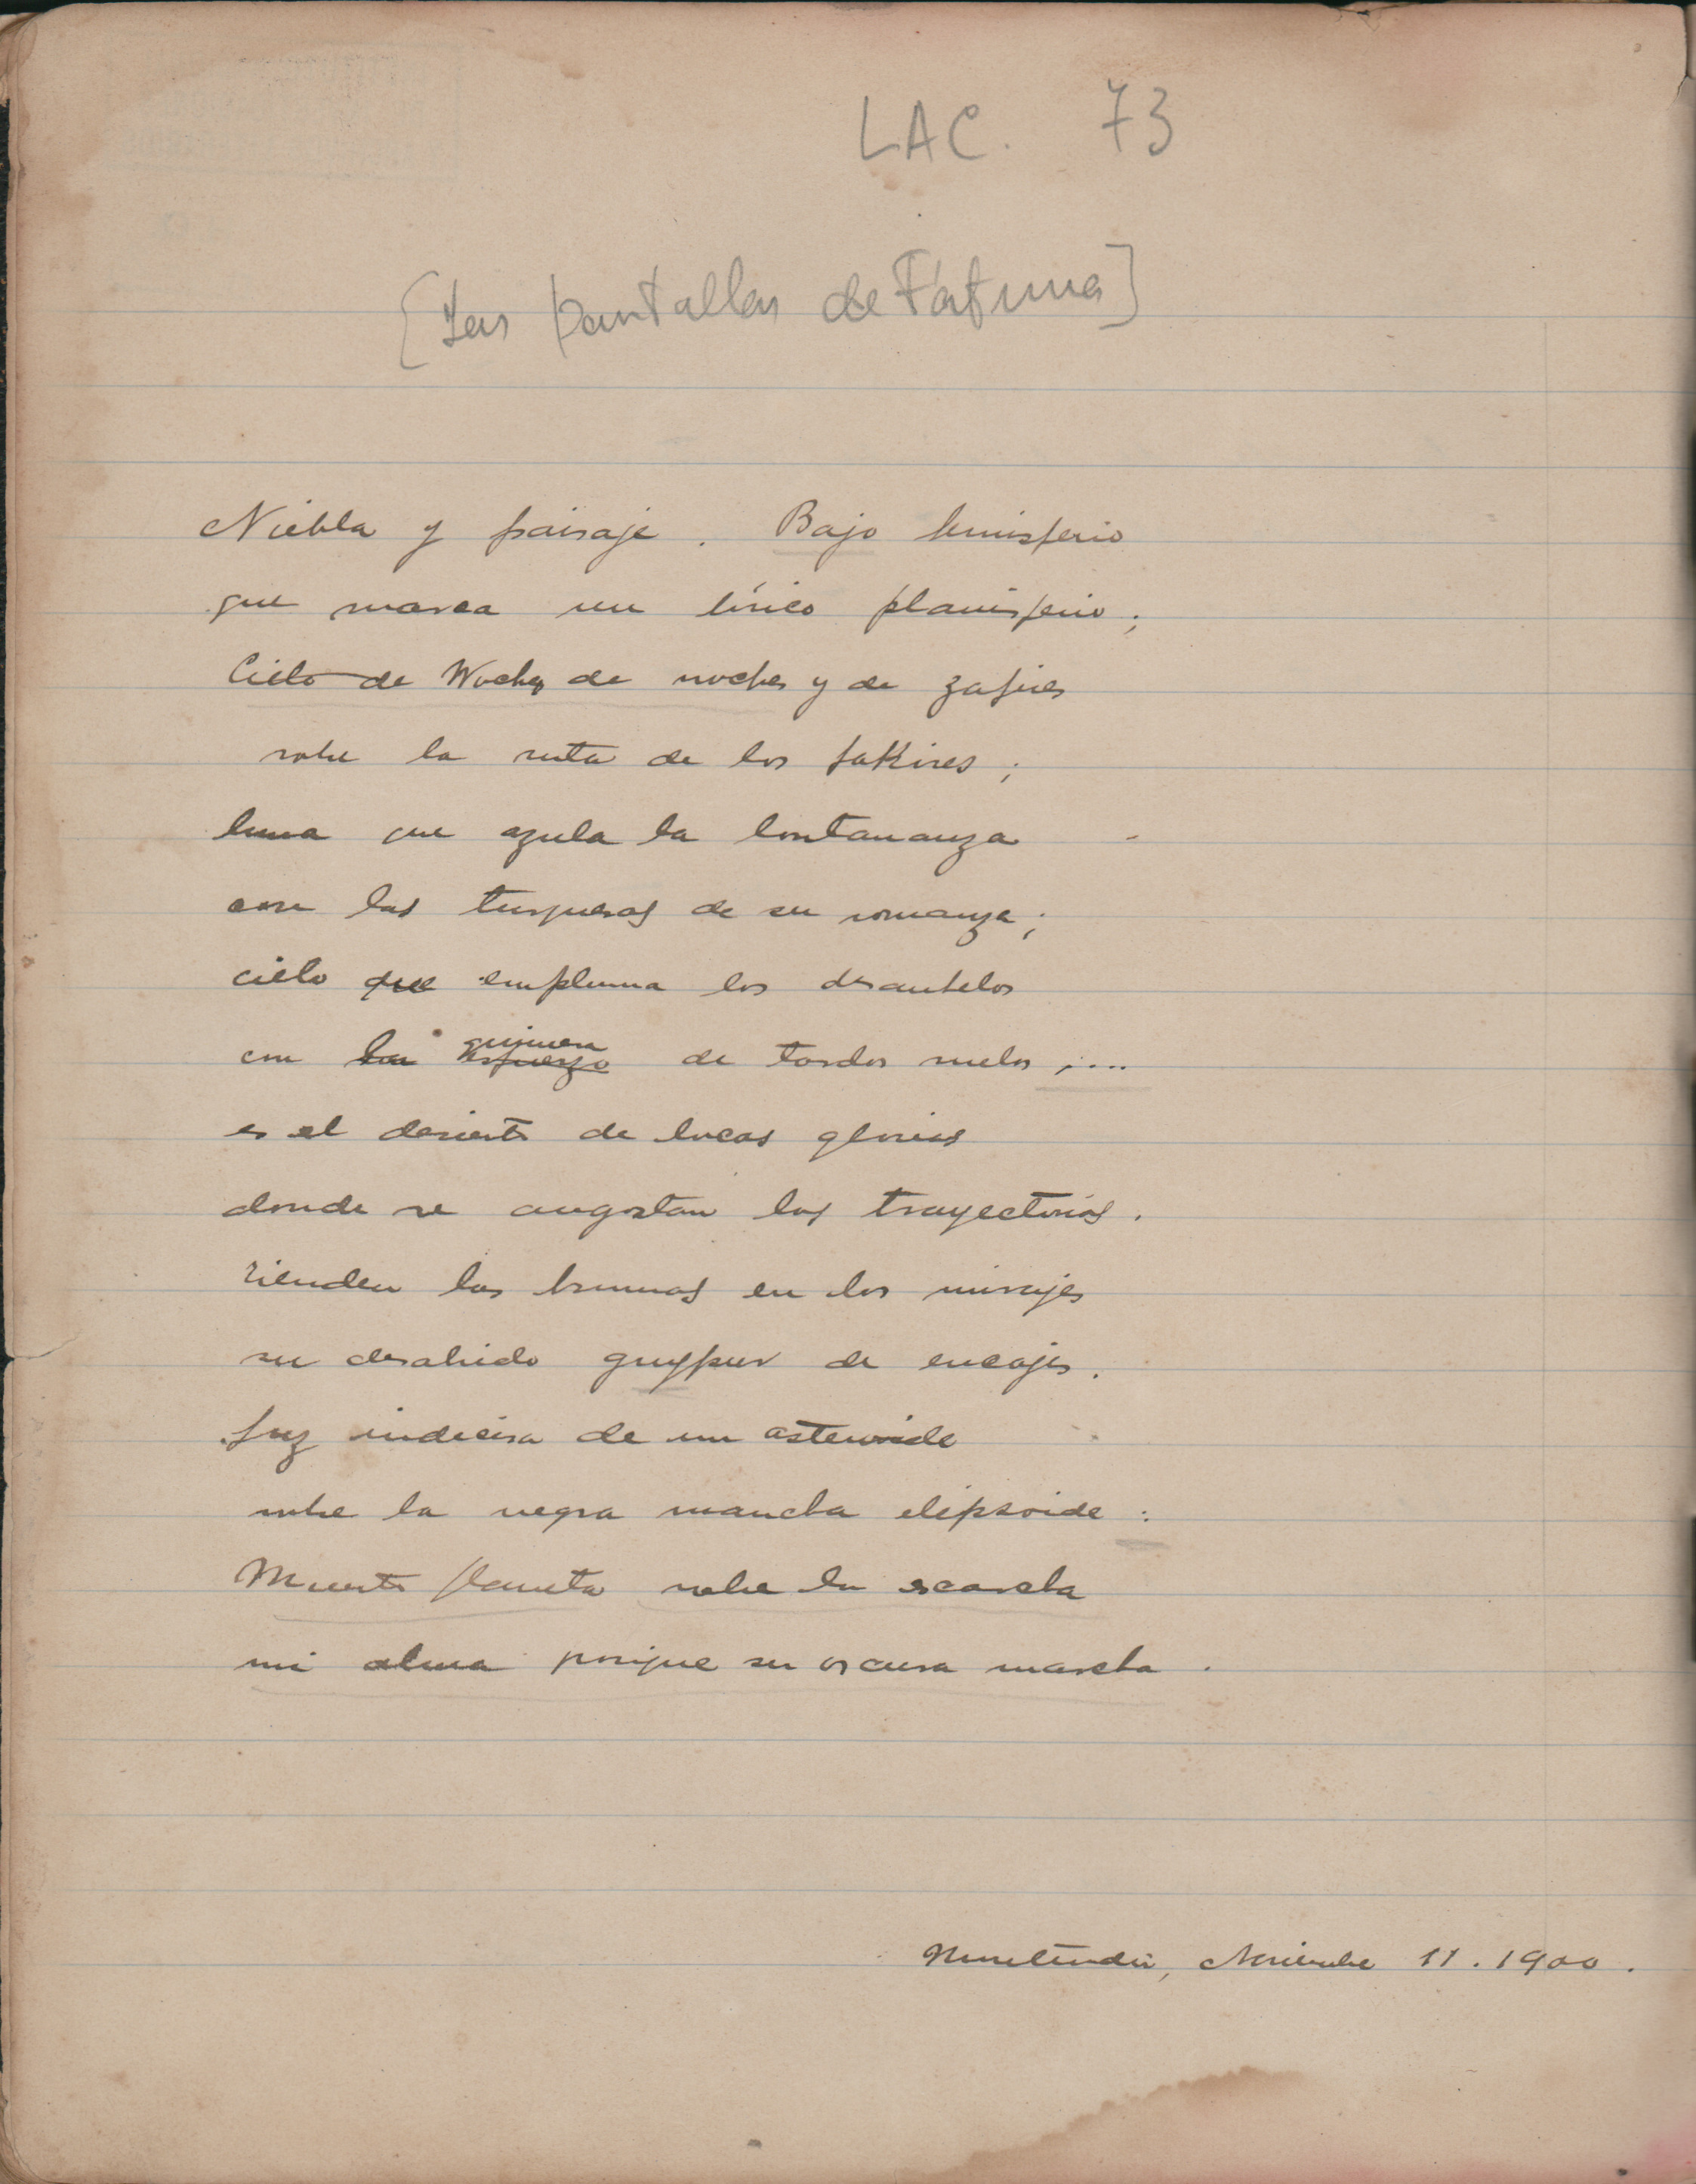 LAC. 73
[Las pantallas de Fátima]
Niebla y paisaje. Bajo hemisferio
que marca un lírico planisferio;
Cielo de Noches de noches y de zafires
sobre la ruta de los fakires;
luna que azula la lontananza
con las turquesas de su romanza;
cielo que empluma los desanhelos
con quimera de tardos vuelos;....
es el desierto de locas glorias
donde se angostan las trayectorias.
Tienden las brumas en los mirajes
su desabrido guypur de encajes.
Luz indecisa de un asteroide
sobre la negra mancha elipsoide:
Muerto planeta sobre la escarcha
mi alma prosigue su oscura marcha.
Montevideo, Noviembre 11. 1900.